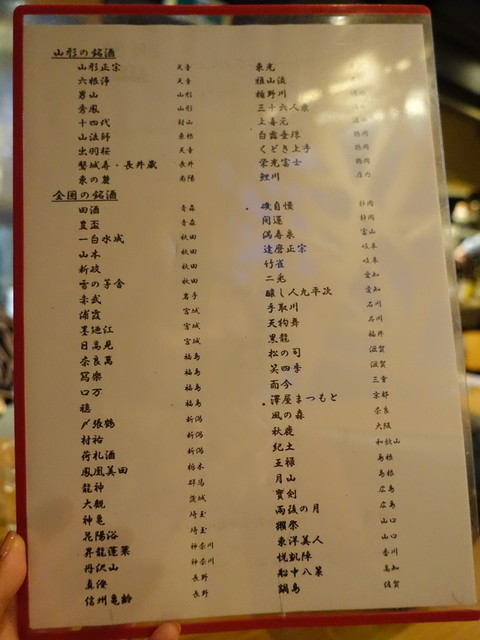 山形の銘酒
山形正宗 天童
六根浄 天童
男山 山形
秀鳳 山形
十四代 村山
山法師 東根
出羽桜 天童
磐城寿・長井蔵 長井
東の麓 南陽
東光
雅山流
楯野川
三十六人衆
上喜元
白露垂珠 鶴岡
くどき上手 鶴岡
栄光冨士 鶴岡
鯉川 庄内
全国の銘酒
田酒 青森
豊盃 青森
一白水成 秋田
山本 秋田
新政 秋田
雪の茅舎 秋田
赤武 岩手
浦霞 宮城
墨廼江 宮城
日高見 宮城
奈良萬 福島
冩樂 福島
口万 福島
穏 福島
〆張鶴 新潟
村祐 新潟
荷札酒 新潟
鳳凰美田 栃木
龍神 群馬
大観 茨城
神亀 埼玉
花陽浴 埼玉
昇龍蓬莱 神奈川
丹沢山 神奈川
真澄 長野
信州亀齢 長野
磯自慢 静岡
開運 静岡
満寿泉 富山
達磨正宗 岐阜
竹雀 岐阜
二兎 愛知
醸し人九平次 愛知
手取川 石川
天狗舞 石川
黒龍 福井
松の司 滋賀
笑四季 滋賀
而今 三重
澤屋まつもと 京都
風の森 奈良
秋鹿 大阪
紀土 和歌山
王祿 島根
月山 島根
寳剣 広島
雨後の月 広島
獺祭 山口
東洋美人 山口
悦凱陣 香川
船中八策 高知
鍋島 佐賀